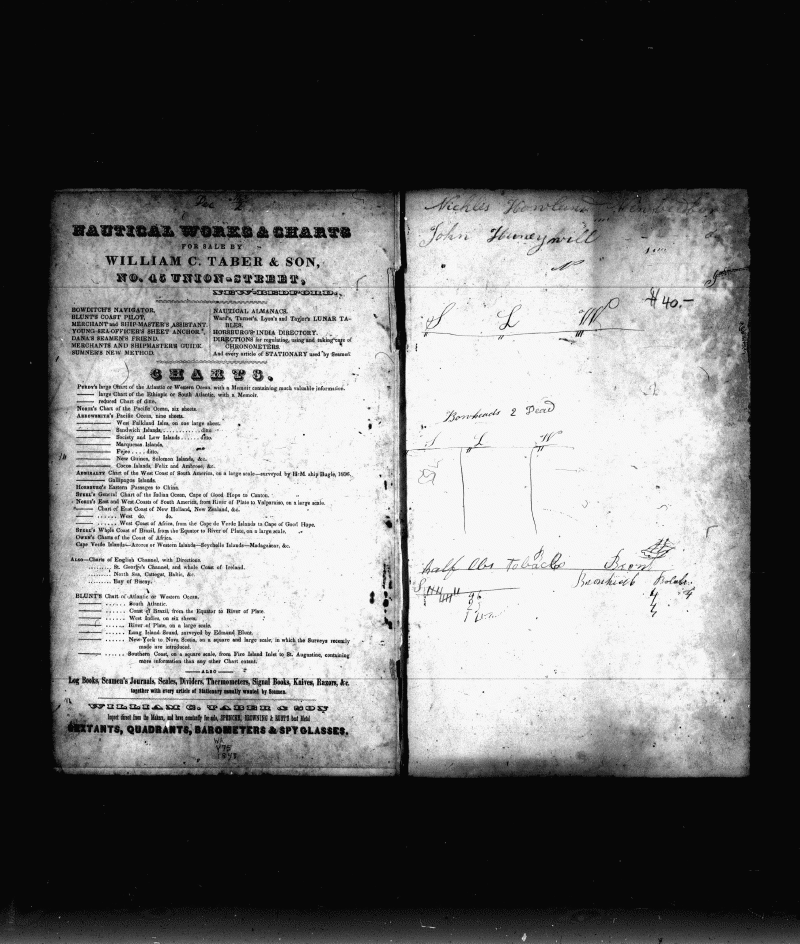 NAUTICAL WORKS & CHARTS
FOR SALE BY
WILLIAM C. TABER & SON,
NO. 45 UNION-STREET,
NEW-BEDFORD.
BOWDITCH'S NAVIGATOR.
BLUNT'S COAST PILOT.
MERCHANT and SHIP-MASTER'S ASSISTANT.
YOUNG SEA-OFFICER'S SHEET ANCHOR.
DANA'S SEAMEN'S FRIEND.
MERCHANTS AND SHIPMASTERS GUIDE.
SUMNER'S NEW METHOD.
NAUTICAL ALMANACS.
Ward's, Turner's, Lyon's and Taylor's LUNAR TA-
BLES.
HORSBURG'S INDIA DIRECTORY.
DIRECTIONS for regulating, using and taking care of
CHRONOMETERS.
And every article of STATIONARY used by Seamen
CHARTS.
PURDY'S large Chart of the Atlantic or Western Ocean, with a Memoir containing much valuable information.
large Chart of the Ethiopic or South Atlantic, with a Memoir.
reduced Chart of ditto.
NORIE'S Chart of the Pacific Ocean, six sheets.
ARROWSMITH'S Pacific Ocean, nine sheets.
West Falkland Isles, on one large sheet.
Sandwich Islands, ditto.
Society and Low Islands ...... ditto.
Marquesas Islands,
Fejee .... ditto.
New Guinea, Solomon Islands, &c.
Cocos Islands, Felix and Ambrose, &c.
ADMIRALTY Chart of the West Coast of South America, on a large scale—surveyed by H. M. ship Beagle, 1836.
Gallipagos Islands.
HORSBURG'S Eastern Passages to China.
STEEL'S General Chart of the Indian Ocean, Cape of Good Hope to Canton.
NORIE'S East and West Coasts of South America, from River of Plate to Valparaiso, on a large scale.
Chart of East Coast of New Holland, New Zealand, &c.
...... West do. do.
...... West Coast of Africa, from the Cape de Verde Islands to Cape of Good Hope.
STEEL'S Whole Coast of Brazil, from the Equator to River of Plate, on a large scale.
OWEN'S Charts of the Coast of Africa.
Cape Verde Islands—Azores or Western Islands—Seychelle Islands—Madagascar, &c.
ALSO—Charts of English Channel, with Directions.
........ St. George's Channel, and whole Coast of Ireland.
........ North Sea, Cattegat, Baltic, &c.
........ Bay of Biscay.
BLUNT'S Chart of Atlantic or Western Ocean.
...... South Atlantic.
...... Coast of Brazil, from the Equator to River of Plate.
...... West Indies, on six sheets.
...... River of Plate, on a large scale.
...... Long Island Sound, surveyed by Edmund Blunt.
...... New-York to Nova Scotia, on a square and large scale, in which the Surveys recently
made are introduced.
...... Southern Coast, on a square scale, from Fire Island Inlet to St. Augustine, containing
more information than any other Chart extant.
ALSO
Log Books, Seamen's Journals, Scales, Dividers, Thermometers, Signal Books, Knives, Razors, &c.
together with every article of Stationary usually wanted by Seamen.
WILLIAM C. TABER & SON
Import direct from the Makers, and have constantly for sale, SPENCER, BROWNING & RUST'S best Metal
SEXTANTS, QUADRANTS, BAROMETERS & SPYGLASSES.
John Huneywill
$40.-
S L W
Bowheads 2 Dead
S L W
Half lbs tobacco